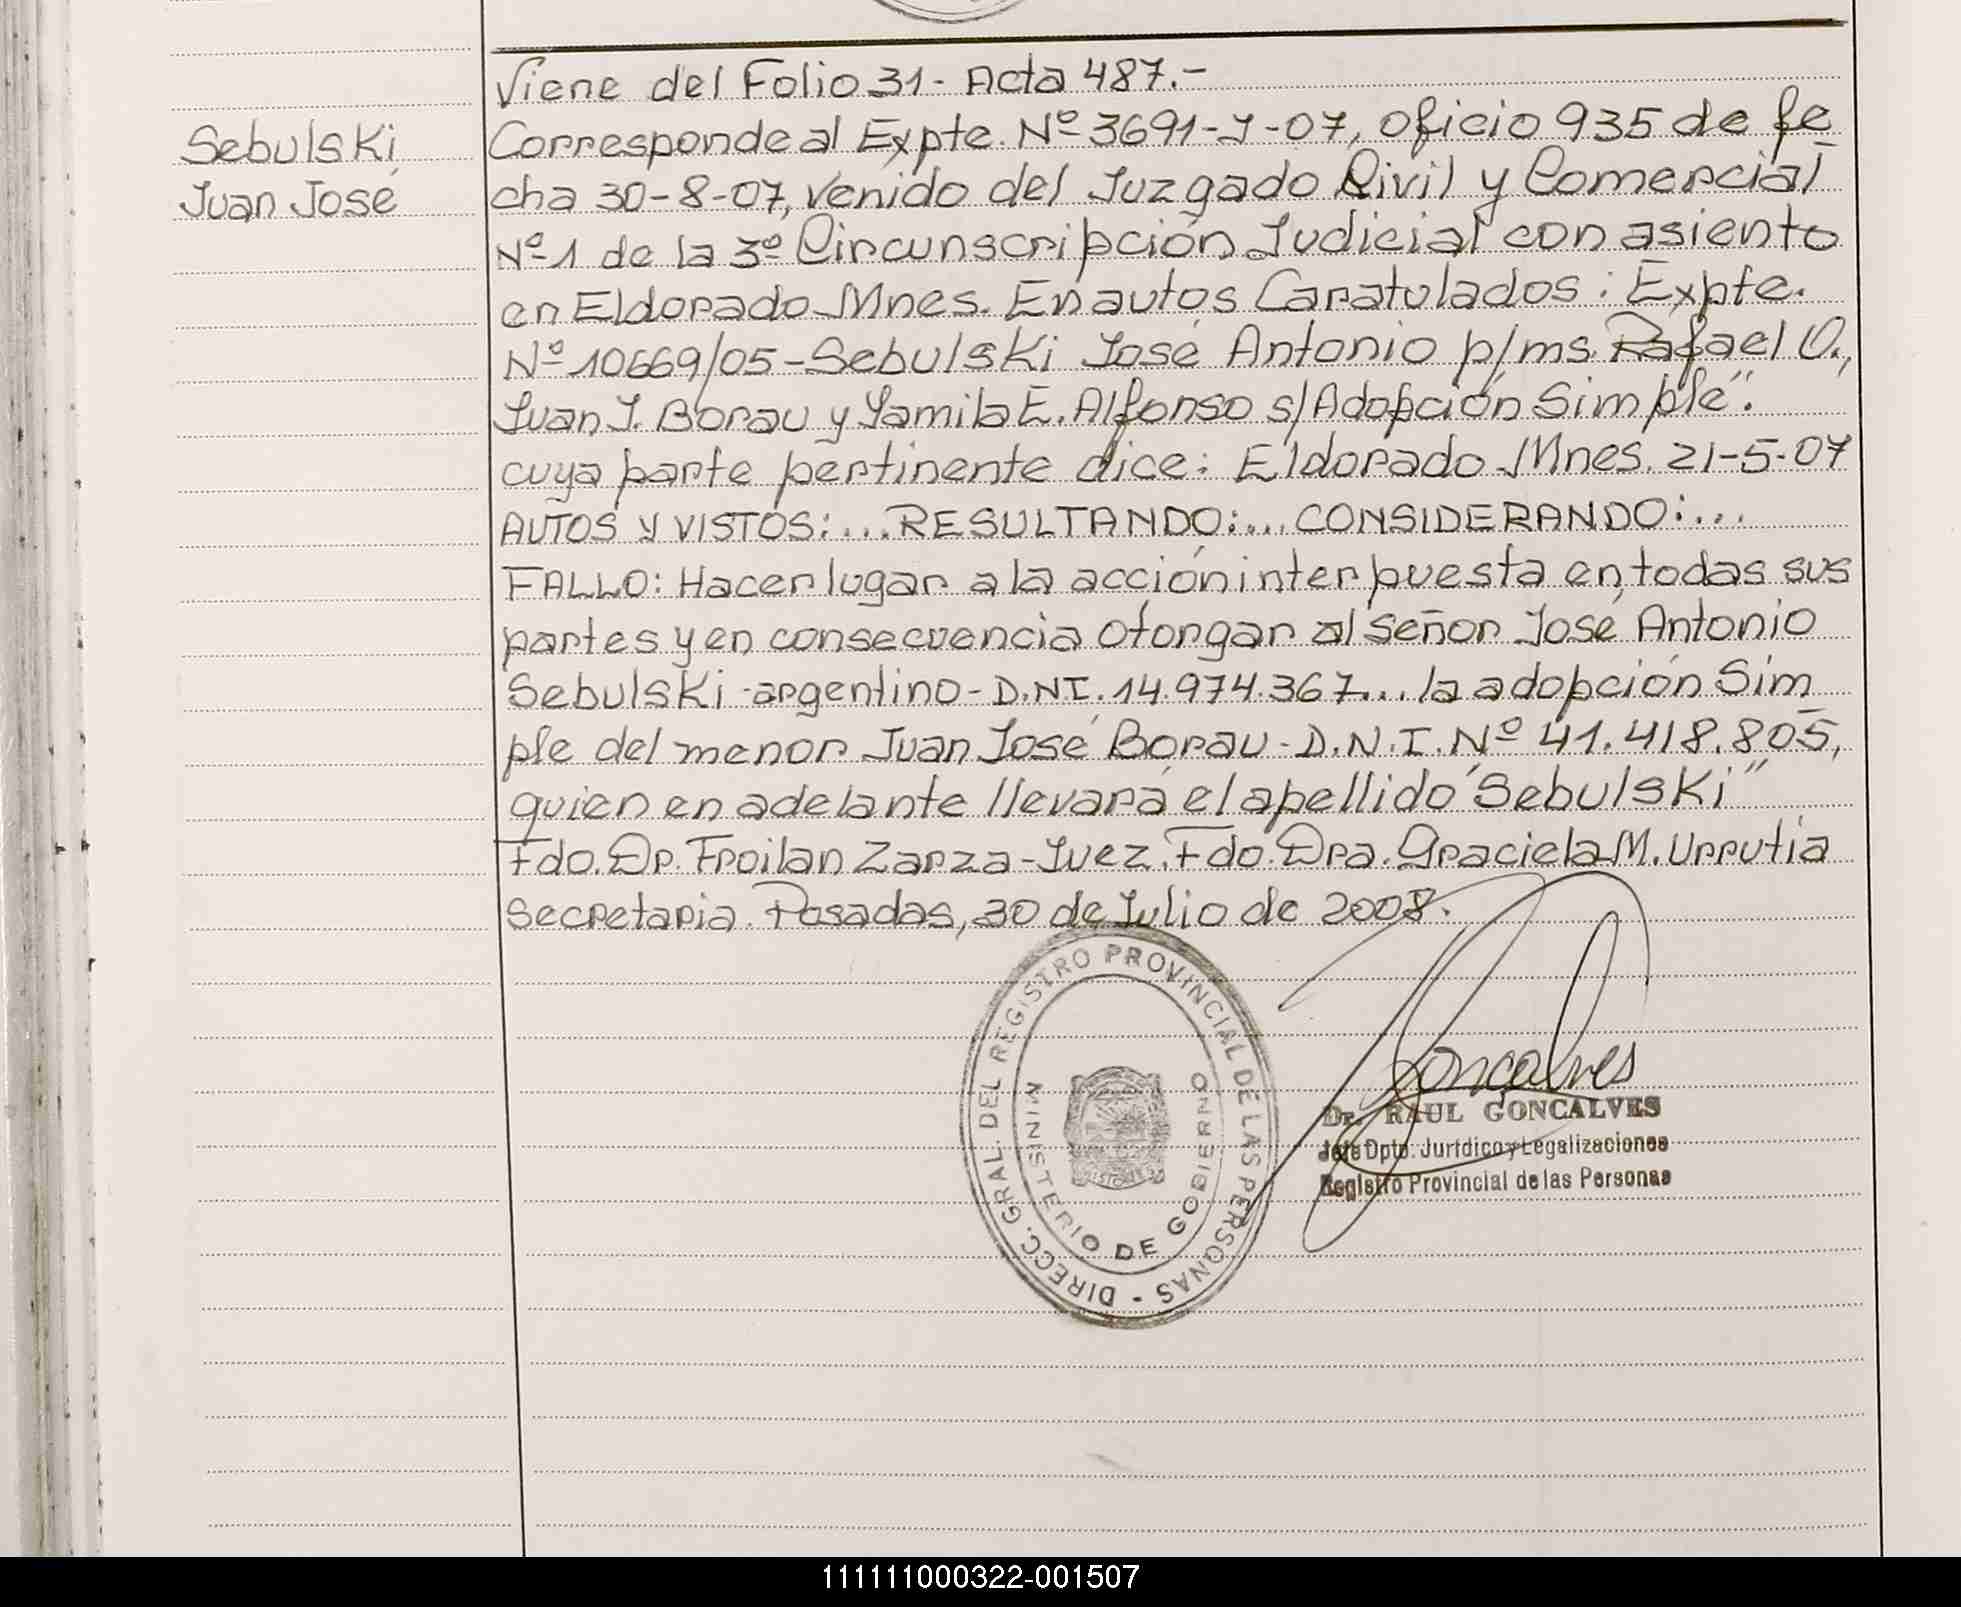 Viene del Folio 31- Acta 487.-
Sebulski
Juan José
Corresponde al Expte. Nº 3691-J-07, oficio 935 de fe
cha 30-8-07, venido del Juzgado Civil y Comercial
Nº 1 de la 3º Circunscripción Judicial con asiento
en Eldorado Mnes. En autos Caratulados: Expte.
Nº 10669/05-Sebulski José Antonio p/ms. Rafael O.,
Juan J. Borau y Yamila E. Alfonso s/Adopción Simple".
cuya parte pertinente dice: Eldorado Mnes. 21-5-07
AUTOS Y VISTOS:...RESULTANDO:...CONSIDERANDO:...
FALLO: Hacer lugar a la acción interpuesta en todas sus
partes y en consecuencia otorgar al señor José Antonio
Sebulski -argentino- D.NI. 14.974.367... la adopción Sim
ple del menor Juan José Borau- D.N.I. Nº 41.418.805,
quien en adelante llevará el apellido "Sebulski"
Fdo. Dr. Froilan Zarza-Juez. Fdo. Dra. Graciela M. Urrutia
Secretaria. Posadas, 30 de Julio de 2008.
DIRECC. GRAL. DEL REGISTRO PROVINCIAL DE LAS PERSONAS -
MINISTERIO DE GOBIERNO
MISIONES
Goncalves
Dr. RAUL GONCALVES
Jefe Dpto. Jurídico y Legalizaciones
Registro Provincial de las Personas
111111000322-001507